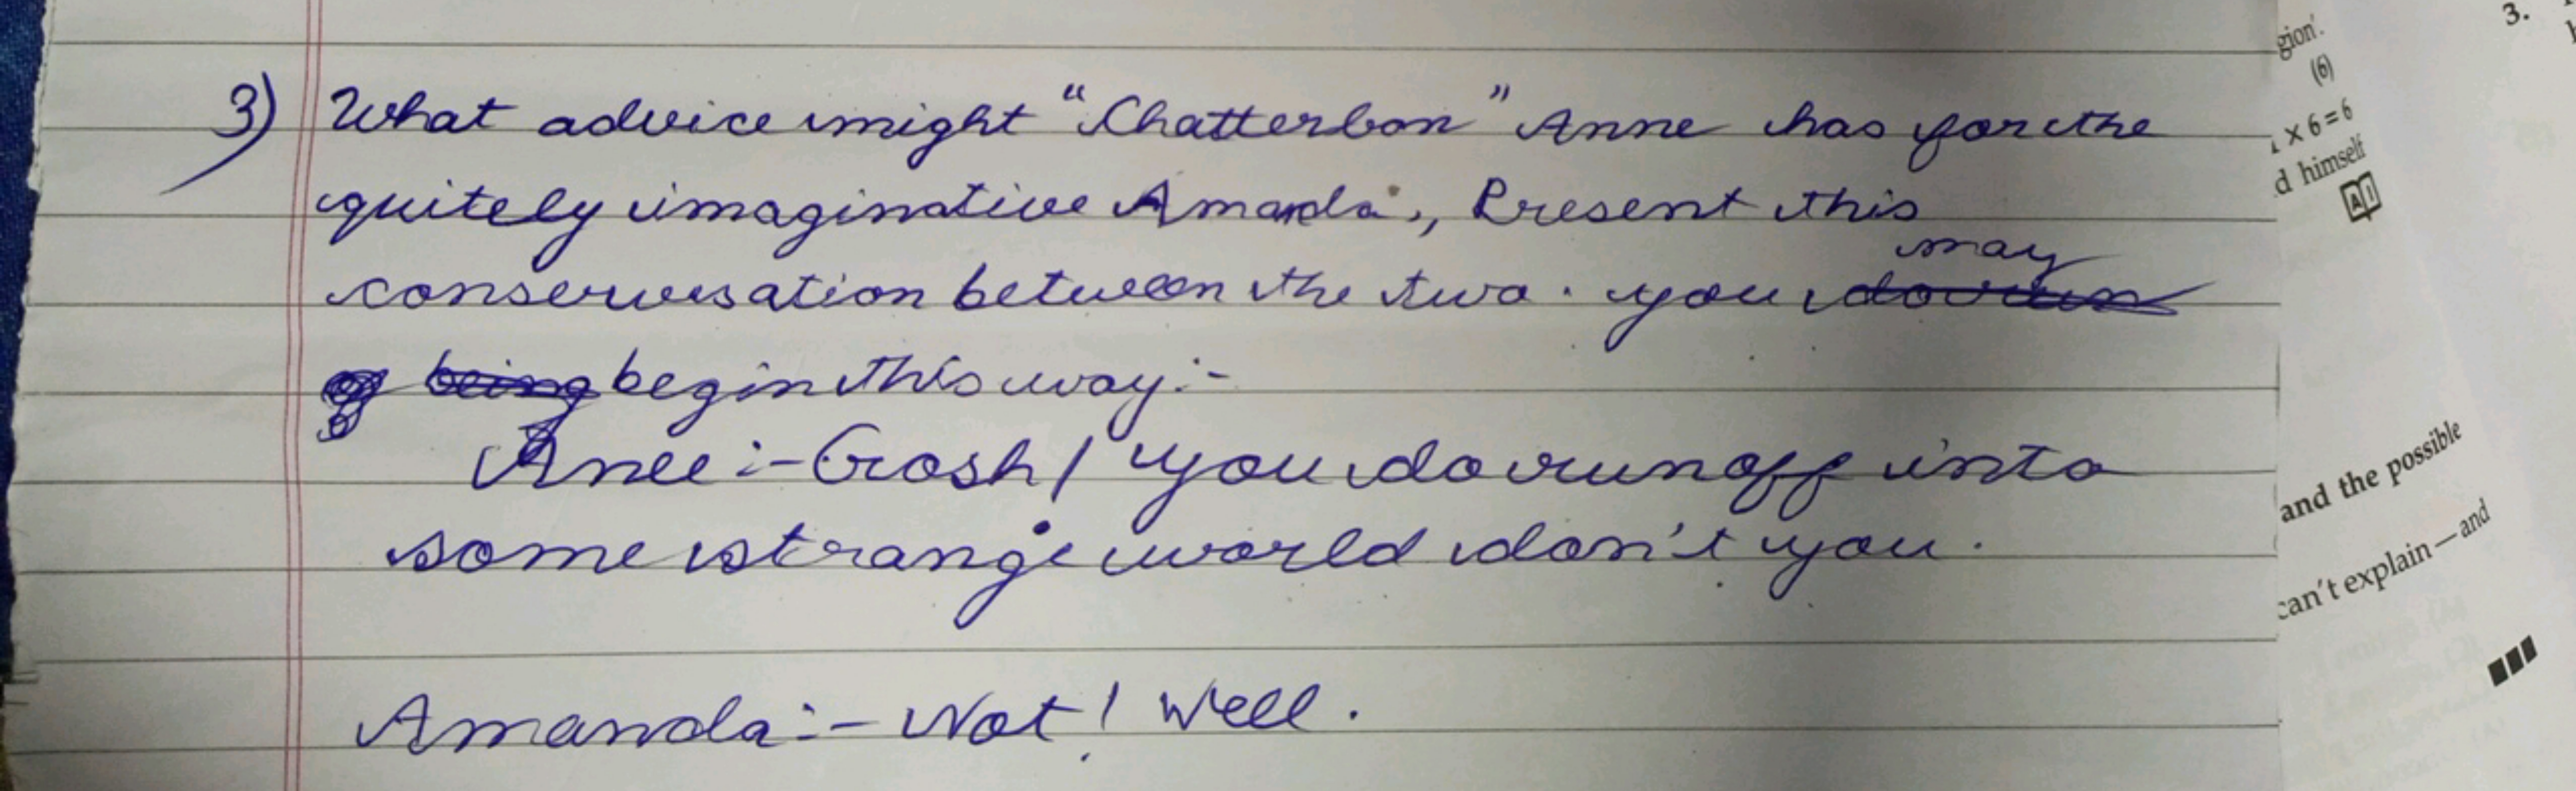 3) What advice might "Chatterbon" Anne has for the
quitely imaginative Amanda, Present this
conserversation between the two. you may
begin this way:-
Anee :- Gosh! you do run off into
some strange world don't you.
Amanda:- Not! Well.
gion'.
(6)
x 6 = 6
d himself
AI
and the possible
can't explain—and
3.